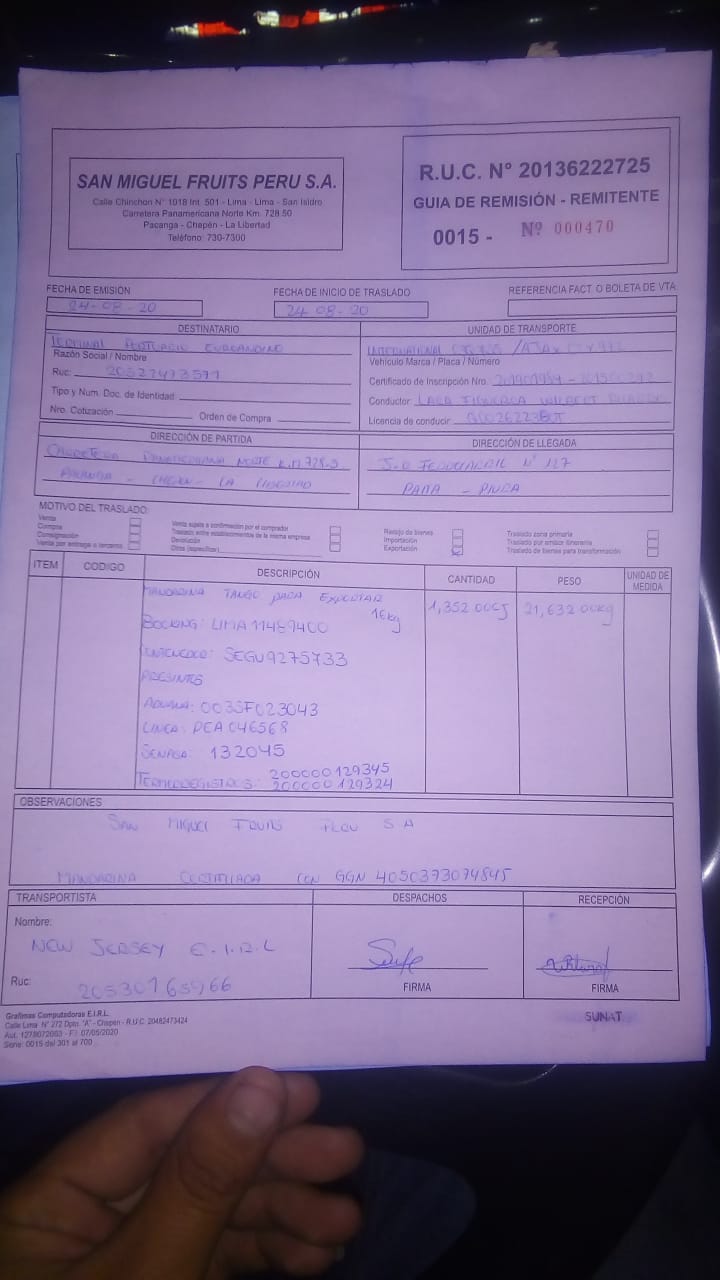 SAN MIGUEL FRUITS PERU S.A.
Calle Chinchon N° 1018 Int. 501 - Lima - Lima - San Isidro
Carretera Panamericana Norte Km. 728.50
Pacanga - Chepén - La Libertad
Teléfono: 730-7300
R.U.C. N° 20136222725
GUIA DE REMISIÓN - REMITENTE
0015 - Nº 000470
FECHA DE EMISIÓN
24-08-20
FECHA DE INICIO DE TRASLADO
24-08-20
REFERENCIA FACT. O BOLETA DE VTA.
DESTINATARIO
TERMINAL PORTUARIO EUROANDINO
Razón Social / Nombre
Ruc: 20522473571
Tipo y Num. Doc. de Identidad
Nro. Cotización Orden de Compra
UNIDAD DE TRANSPORTE
INTERNATIONAL
Vehículo Marca / Placa / Número
Certificado de Inscripción Nro.
Conductor: LARA FIGUEROA
Licencia de conducir
DIRECCIÓN DE PARTIDA
CARRETERA PANAMERICANA NORTE K.M 728.5
PACANGA - CHEPEN - LA LIBERTAD
DIRECCIÓN DE LLEGADA
FERROCARRIL N° 127
PAITA - PIURA
MOTIVO DEL TRASLADO:
Venta
Compra
Consignación
Venta por entrega a terceros
Venta sujeta a confirmación por el comprador
Traslado entre establecimientos de la misma empresa
Devolución
Otros (especificar)
Recojo de bienes
Importación
Exportación
Traslado zona primaria
Traslado por emisor itinerante
Traslado de bienes para transformación
ITEM CODIGO DESCRIPCIÓN CANTIDAD PESO UNIDAD DE MEDIDA
MANDARINA TANGO PARA EXPORTAR 1,352.00CJ 21,632.00Kg
16Kg
BOOKING: LIMA11489400
CONTENEDOR: SEGU9275733
PRECINTOS
ADUANA: 003SF023043
LINEA: PEA046568
SENASA: 132045
TERMOREGISTROS: 200000129345
200000129324
OBSERVACIONES
SAN MIGUEL FRUITS PERU S A
MANDARINA CERTIFICADA CON GGN 4050373074845
TRANSPORTISTA
Nombre:
NEW JERSEY E.I.R.L
Ruc: 20530165966
DESPACHOS
FIRMA
RECEPCIÓN
FIRMA
Grafimas Computadoras E.I.R.L.
Calle Lima N° 272 Dpto. "A" - Chepén - R.U.C. 20482473424
Aut. 1278672063 - F.I. 07/05/2020
Serie: 0015 del 301 al 700
SUNAT